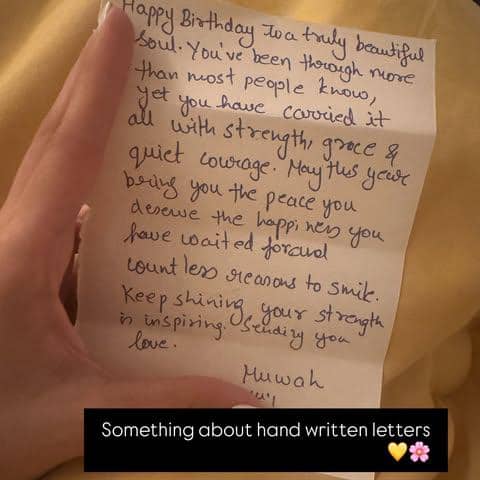 Happy Birthday To a truly beautiful
Soul. You've been through more
than most people know,
yet you have carried it
all with strength, grace &
quiet courage. May this year
bring you the peace you
deserve the happiness you
have waited for and
countless reasons to smile.
Keep shining, your strength
is inspiring. Sending you
love.
Muwah
Something about hand written letters
💛🌸